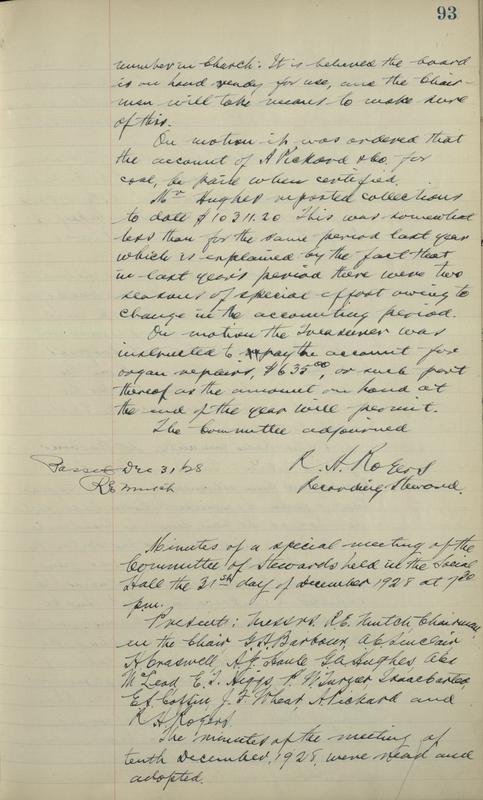 93
number in Church. It is believed the board
is on hand ready for use, and the Chair-
man will take means to make sure
of this.
On motion it was ordered that
the account of A Pickard & Co. for
coal, be paid when certified.
Mr Hughes reported collections
to date $10311.20 This was somewhat
less than for the same period last year
which is explained by the fact that
in last year's period there were two
seasons of special effort owing to
change in the accounting period.
On motion the Treasurer was
instructed to pay the account for
organ repairs, $635.00, or such part
thereof as the amount on hand at
the end of the year will permit.
The Committee adjourned
Passed Dec 31/28 R. H. Rogers
RE Mutch Recording Steward.
Minutes of a special meeting of the
Committee of Stewards held in the Social
Hall the 31st day of December 1928 at 7.30
p.m.
Present: Messrs. R.E. Mutch Chairman,
in the Chair, G.A. Barbour, A.E. Sinclair
H Craswell, A.J. G.A. Hughes,
McLeod E. T. Higgs, P. W. Turner Isaac Carter,
E.S. Coffin, J. F. Wheat A Pickard and
R H Rogers.
The minutes of the meeting of
tenth December, 1928, were read and
adopted.